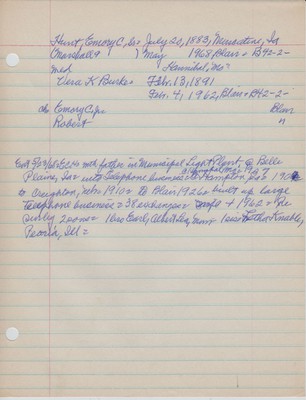 Hunt, Emory C, b= July 20, 1883, Muscatine, Ia
Marshall? ? May 1968, Blair = B42-2-
md Hannibal, Mo
Vera K Burke= Febr. 13, 1891
Febr. 4, 1962, Blair = B42-2-
ch Emory C jr= Blair
Robert "
with father in Municipal Light Plant @ Belle
Plaine, Ia= into Telephone business @ Hampton, 1908
to Creighton, Nebr 1910= to Blair 1926= built up large
telephone business = 38 exchanges= + 1962= Re
Surv by 2 sons= 1 bro Earl, Albert Lea, Minn 1 sis Knable,
Peoria, Ill=